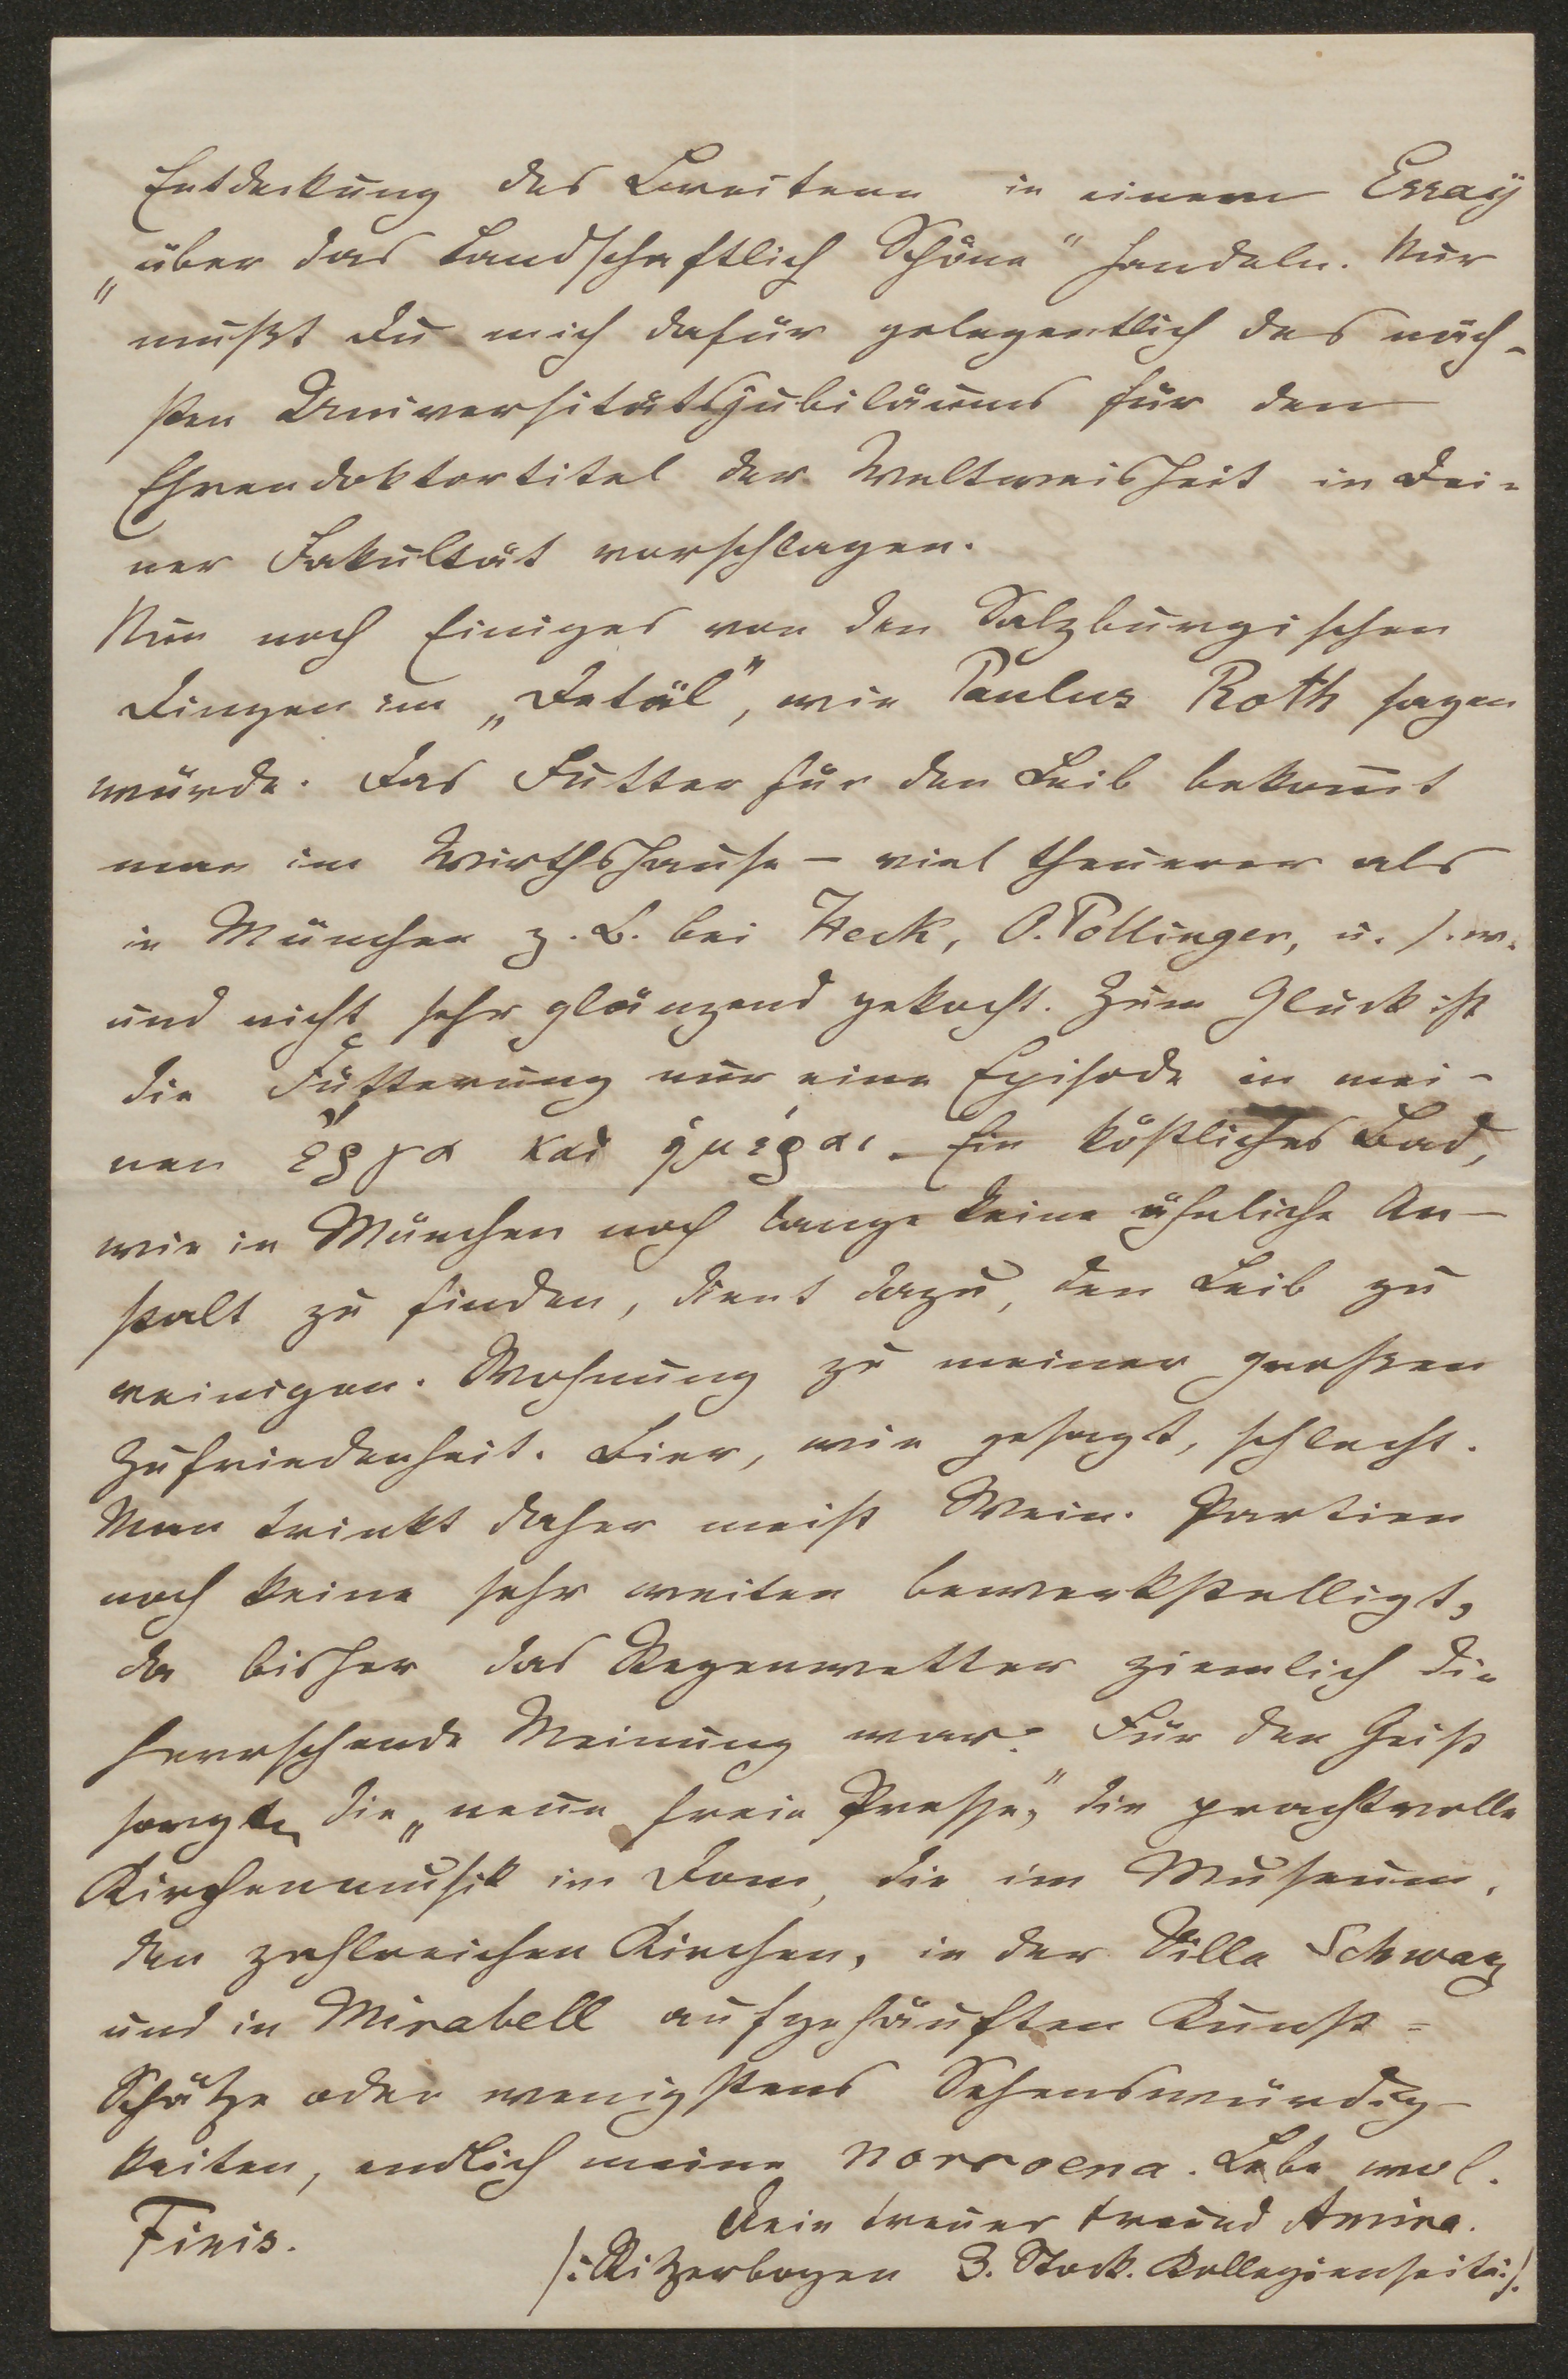 Entdeckung des Breiteren in einem Essay
„über das Landschaftlich Schöne" handeln. Nur
mußt Du mich dafür gelegentlich des näch-
sten Universitätsjubiläums für den
Ehrendoktortitel der Weltweisheit in Dei-
ner Fakultät vorschlagen.
Nun noch Einiges von den Salzburgischen
Dingen im „Detäl", wie Paulus Roth sagen
würde. Das Futter für den Leib bekom̅t
man im Wirthshause – viel theuerer als
in München z. B. bei Heck, O. Pollinger, u. s. w.
und nicht sehr glänzend gekocht. Zum Glück ist
die Fütterung nur eine Episode in mei-
nen ἔργα καὶ ἡμέραι. Ein köstliches Bad,
wie in München noch lange keine ähnliche An-
stalt zu finden, dient dazu, den Leib zu
reinigen. Wohnung zu meiner großen
Zufriedenheit. Bier, wie gesagt, schlecht.
Man trinkt daher meist Wein. Partien
noch keine sehr weiten bewerkstelligt,
da bisher das Regenwetter ziemlich die
herrschende Meinung war. Für den Geist
sorgten die „neue freie Presse," die prachtvolle
Kirchenmusik im Dom, die im Museum,
den zahlreichen Kirchen, in der Villa Schwarz
und in Mirabell aufgehäuften Kunst=
Schätze oder wenigstens Sehenswürdig-
keiten, endlich meine norroena. Lebe wol.
Dein treuer Freund Amira.
Finis.
/: Ritzerbogen 3. Stock. Kollegienseite :/.